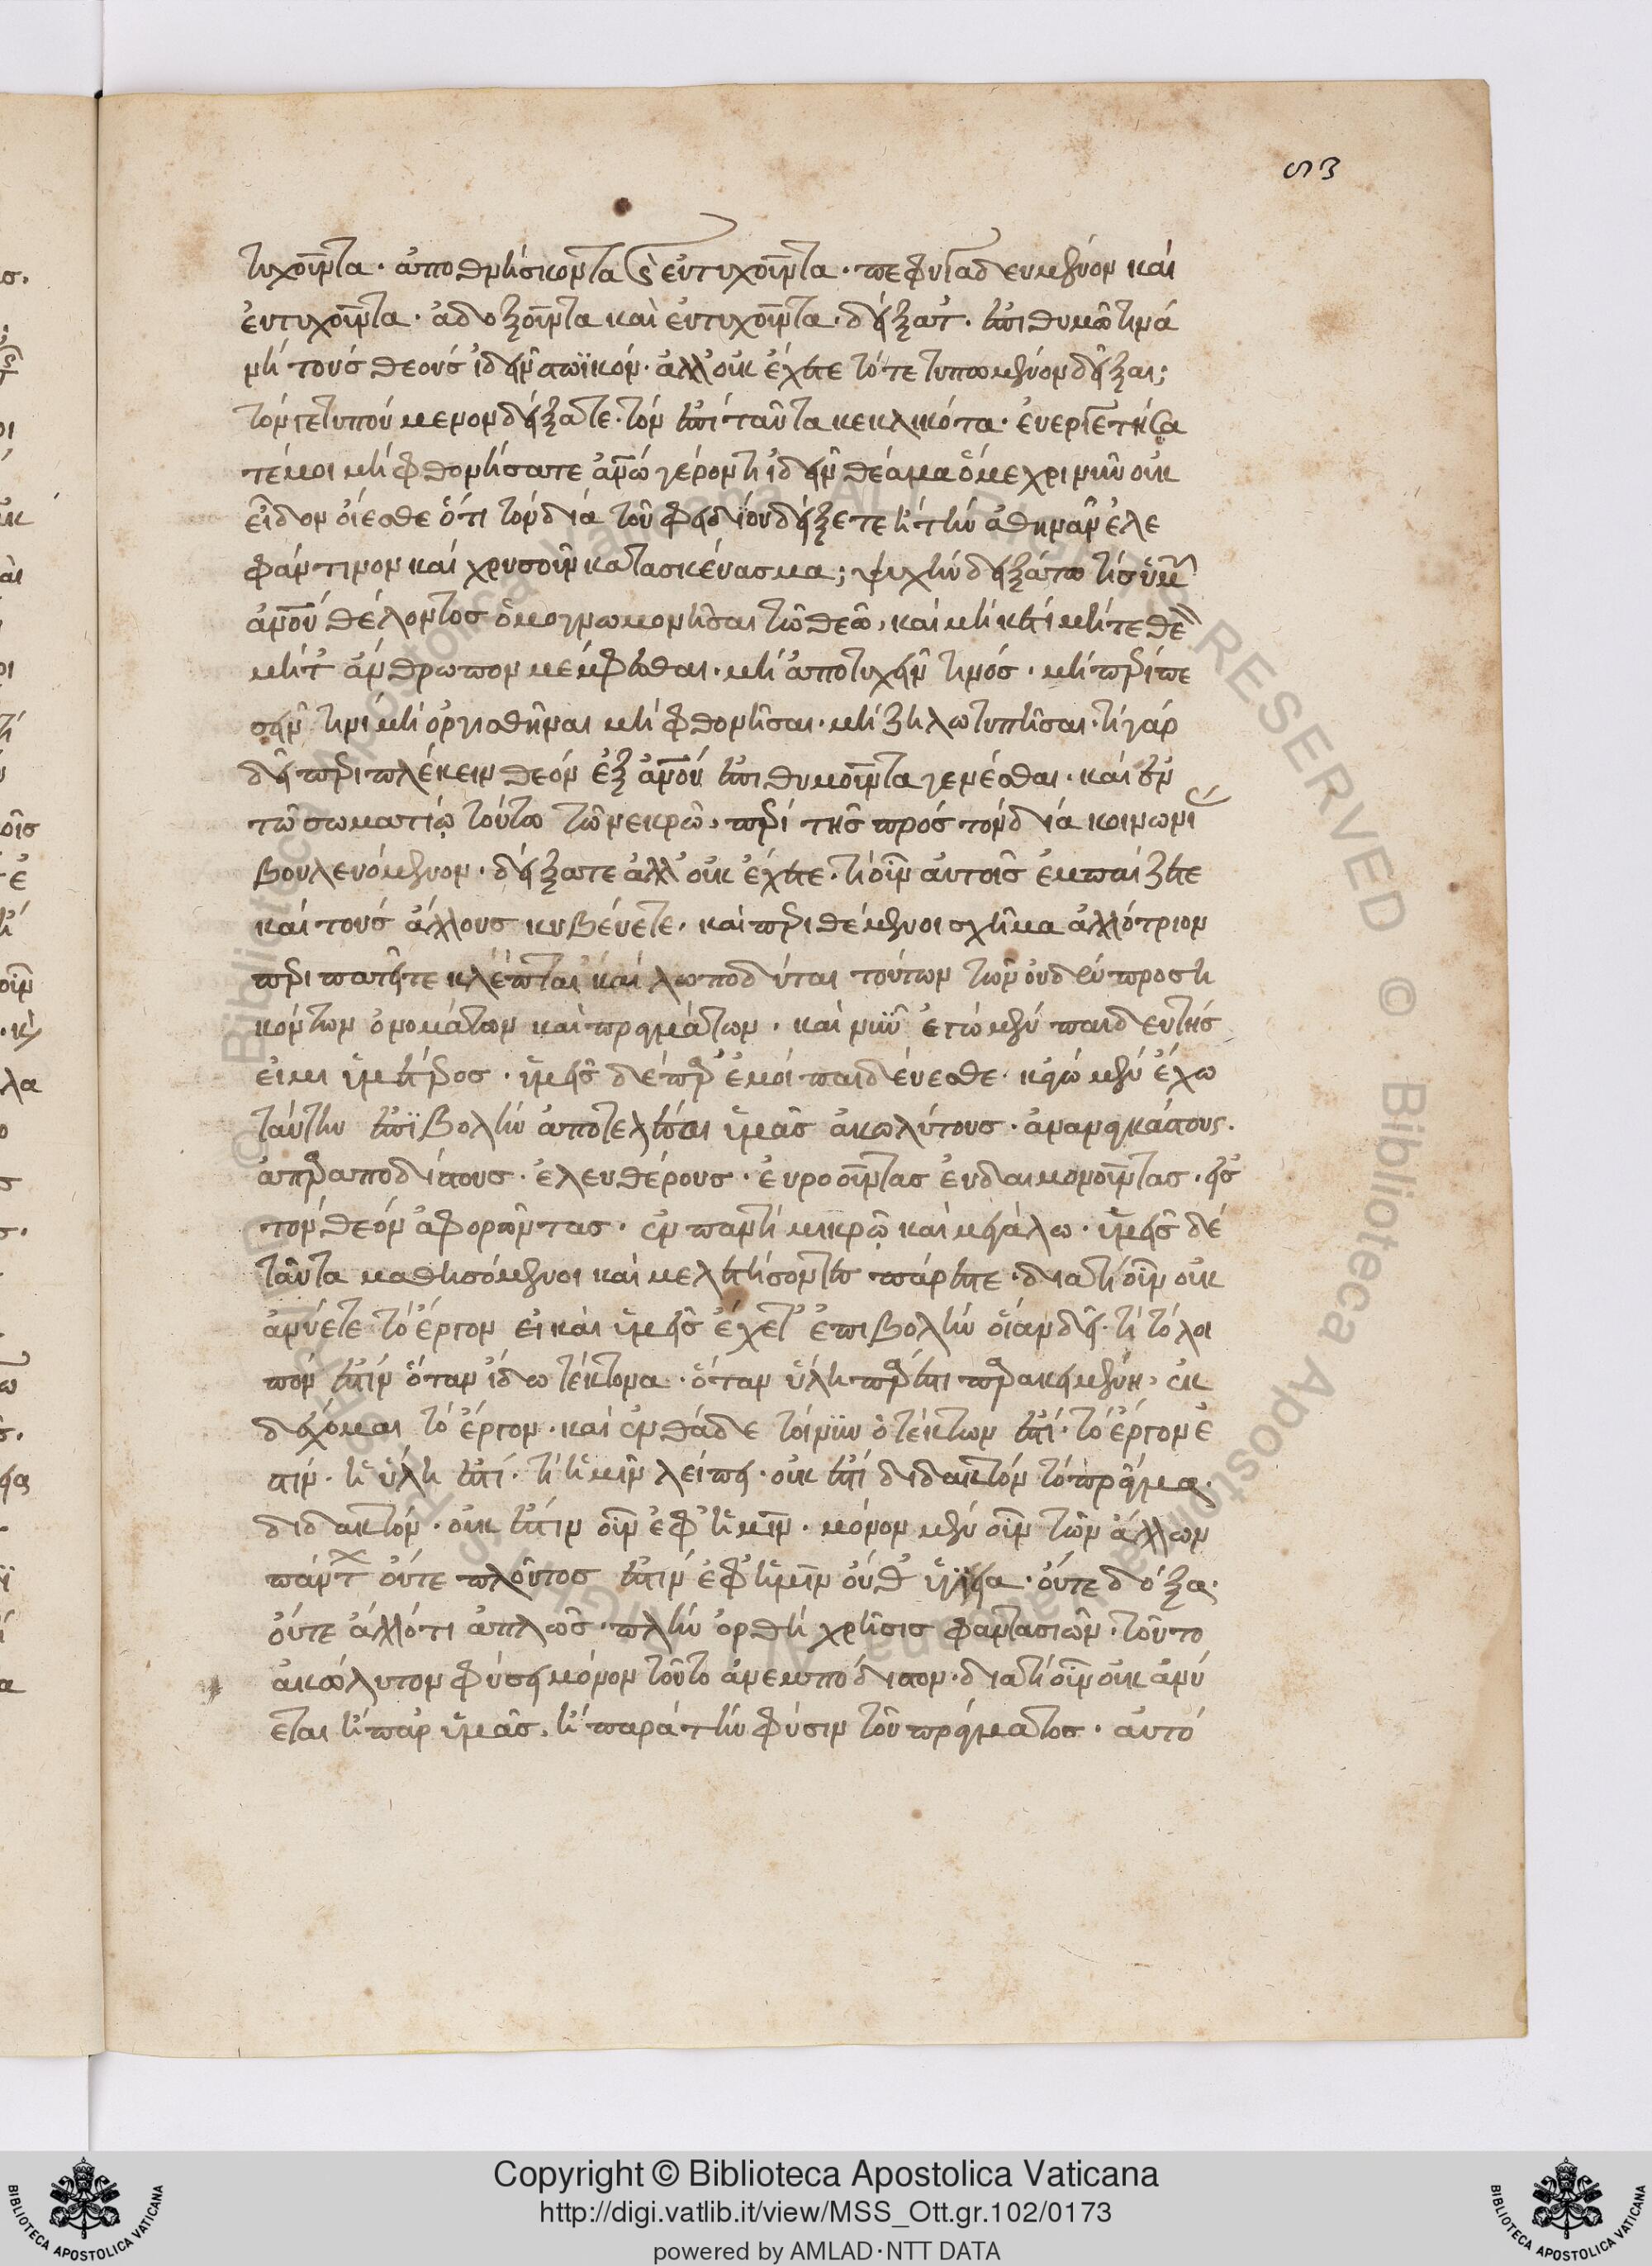 93
τυχοῦντα· ἀποθνήσκοντα καὶ εὐτυχοῦντα· πεφυγαδευμένον καὶ
εὐτυχοῦντα· ἀδοξοῦντα καὶ εὐτυχοῦντα· δείξατ· ἐπιθυμῶ τινά
νή τους θεούς ἰδεῖν στωϊκόν· ἀλλ' οὐκ ἔχετε τό τε τυπωμένον δεῖξαι;
τόν γε τυπούμενον δείξατε· τόν ἐπί ταῦτα κεκλικότα· ἐυεργετήσα
τέ μοι μή φθονήσατε ἀνω γέροντι ἰδεῖν θέαμα ὅ μέχρι νῦν οὐκ
εἶδον οἴεσθε ὅτι τόν δία τοῦ φειδίου δείξετε ἤ τήν ἀθηνᾶν ἐλε
φάντινον καί χρυσοῦν κατασκεύασμα; ψυχήν δειξάτω τίς ὑμ
ἀνου θέλοντος ὁμογνωμονῆσαι τῶ θεῶ, καί μηκέτι μήτε θε
μήτ ἄνθρωπον μέμφεσθαι· μή ἀποτυχεῖν τινός· μή περιπε
σεῖν τινι μή ὀργισθῆναι μή φθονῆσαι· μή ζηλωτυπῆσαι· τί γάρ
δεῖ περιπλέκειν θεόν ἐξ ἀνου ἐπιθυμοῦντα γενέσθαι· καί ἐν
τῶ σωματίῳ τούτω τῶ νεκρῶ, περί τῆς πρός τόν δία κοινωνι
βουλευόμενον· δείξατε ἀλλ' οὐκ ἔχετε· τί οὖν αὐτοῖς ἐμπαίζετε
καί τούς ἄλλους κυβεύετε, καί περιθέμενοι σχῆμα ἀλλότριον
περιπατεῖτε κλέπται καί λωποδύται τούτων τῶν οὐδέν προση
κόντων ὀνομάτων καί πραγμάτων· καί νῦν ἐγώ μέν παιδευτής
εἰμι ὑμέτερος· ὑμεῖς δέ παρ' ἐμοί παιδεύεσθε· κἀγώ μέν ἔχω
ταύτην ἐπιβολήν ἀποτελέσαι ὑμᾶς ἀκωλύτους· ἀναναγκάστους·
ἀπαραποδίστους· ἐλευθέρους· εὐροοῦντας εὐδαιμονοῦντας· εἰς
τόν θεόν ἀφορῶντας· ἐν παντί μικρῶ καί μεγάλω· ὑμεῖς δέ
ταῦτα μαθησόμενοι καί μελετήσοντες πάρεστε· διατί οὖν οὐκ
ἀνύετε τό ἔργον εἰ καί ὑμεῖς ἔχετ ἐπιβολήν οἵαν δεῖ· τί τό λοι
πόν ἐστίν ὅταν ἴδω τέκτονα· ὅταν ὕλη πάρεστι παρακειμένη· ἐκ
δέχομαι τό ἔργον· καί ἐνθάδε τοίνυν ὁ τέκτων ἐστί· τό ἔργον ἐ
στίν· ἡ ὕλη ἐστί· τί ἡμῖν λείπει· οὐκ ἐστί διδακτόν τό πρᾶγμα·
διδακτόν· οὐκ ἐστιν οὖν ἐφ' ἡμῖν· μόνον μέν οὖν τῶν ἄλλων
πάντ οὔτε πλοῦτος ἐστίν ἐφ' ἡμῖν οὔθ' ὑγίεια· οὔτε δόξα·
οὔτε ἄλλό τι ἁπλῶς· πλήν ὀρθή χρῆσις φαντασιῶν· τοῦτο
ἀκώλυτον φύσει μόνον τοῦτο ἀνεμπόδιστον· διατί οὖν οὐκ ἀνύ
εται ἤ παρ ὑμᾶς, ἤ παρά τήν φύσιν τοῦ πράγματος· αὐτό
Copyright © Biblioteca Apostolica Vaticana
http://digi.vatlib.it/view/MSS_Ott.gr.102/0173
powered by AMLAD·NTT DATA